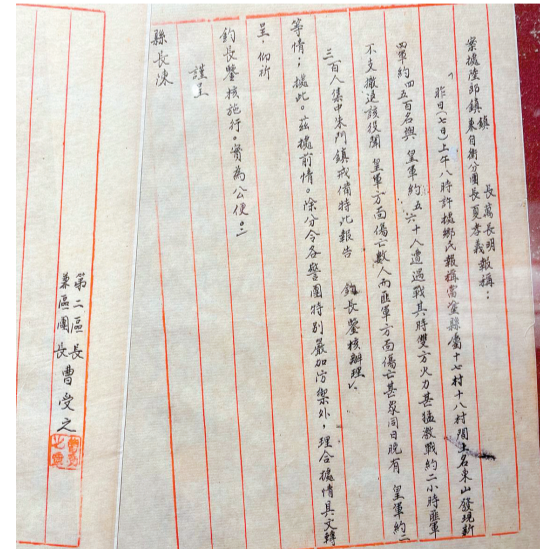 案據陸郎鎮鎮長葛長明東自衛分團長夏孝義報稱：
「昨日（七日）上午八時許據鄉民報稱當塗縣屬十七村十八村間土名東山發現新
四軍約四五百名與　皇軍約五六十人遭遇戰其時雙方火力甚猛激戰約二小時匪軍
不支撤退該役聞　皇軍方面傷亡數人而匪軍方面傷亡甚眾同日晚有　皇軍約二
三百人集中朱門鎮戒備特此報告　鈞長鑒核辦理」
等情；據此。茲據前情。除分令各警團特別嚴加防禦外，理合據情具文轉
呈，仰祈
鈞長鑒核施行。實為公便。
謹呈
縣長陳
第二區長
兼區團長　曹受之